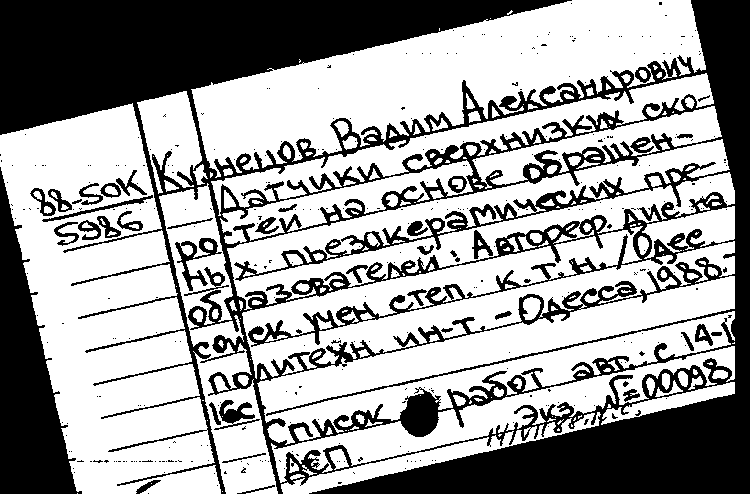 Кузнецов, Вадим Александрович
88-50К
5986
Датчики сверхнизких ско-
ростей на основе обращен-
ных пьезокерамических пре-
образователей: Автореф. дис на
соиск. учен. степ. к.т.н. /Одес.
политехн. ин-т. - Одесса, 1988.-
16с
Список работ авт.: с. 14-16
ДСП Экз. №=00098
14/VII 88.